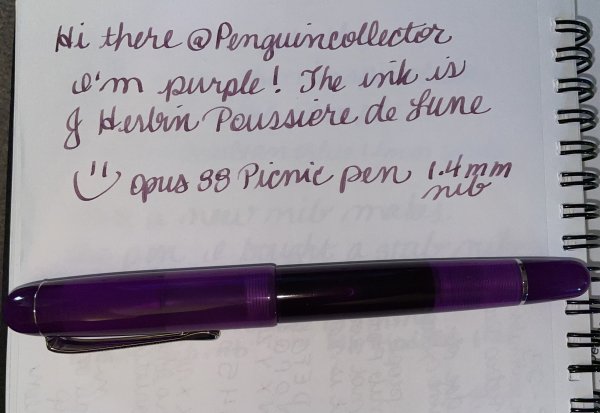 Hi there @Penguincollector
I'm purple! The ink is
J Herbin Poussiere de Lune
Opus 88 Picnic pen 1.4mm
nib